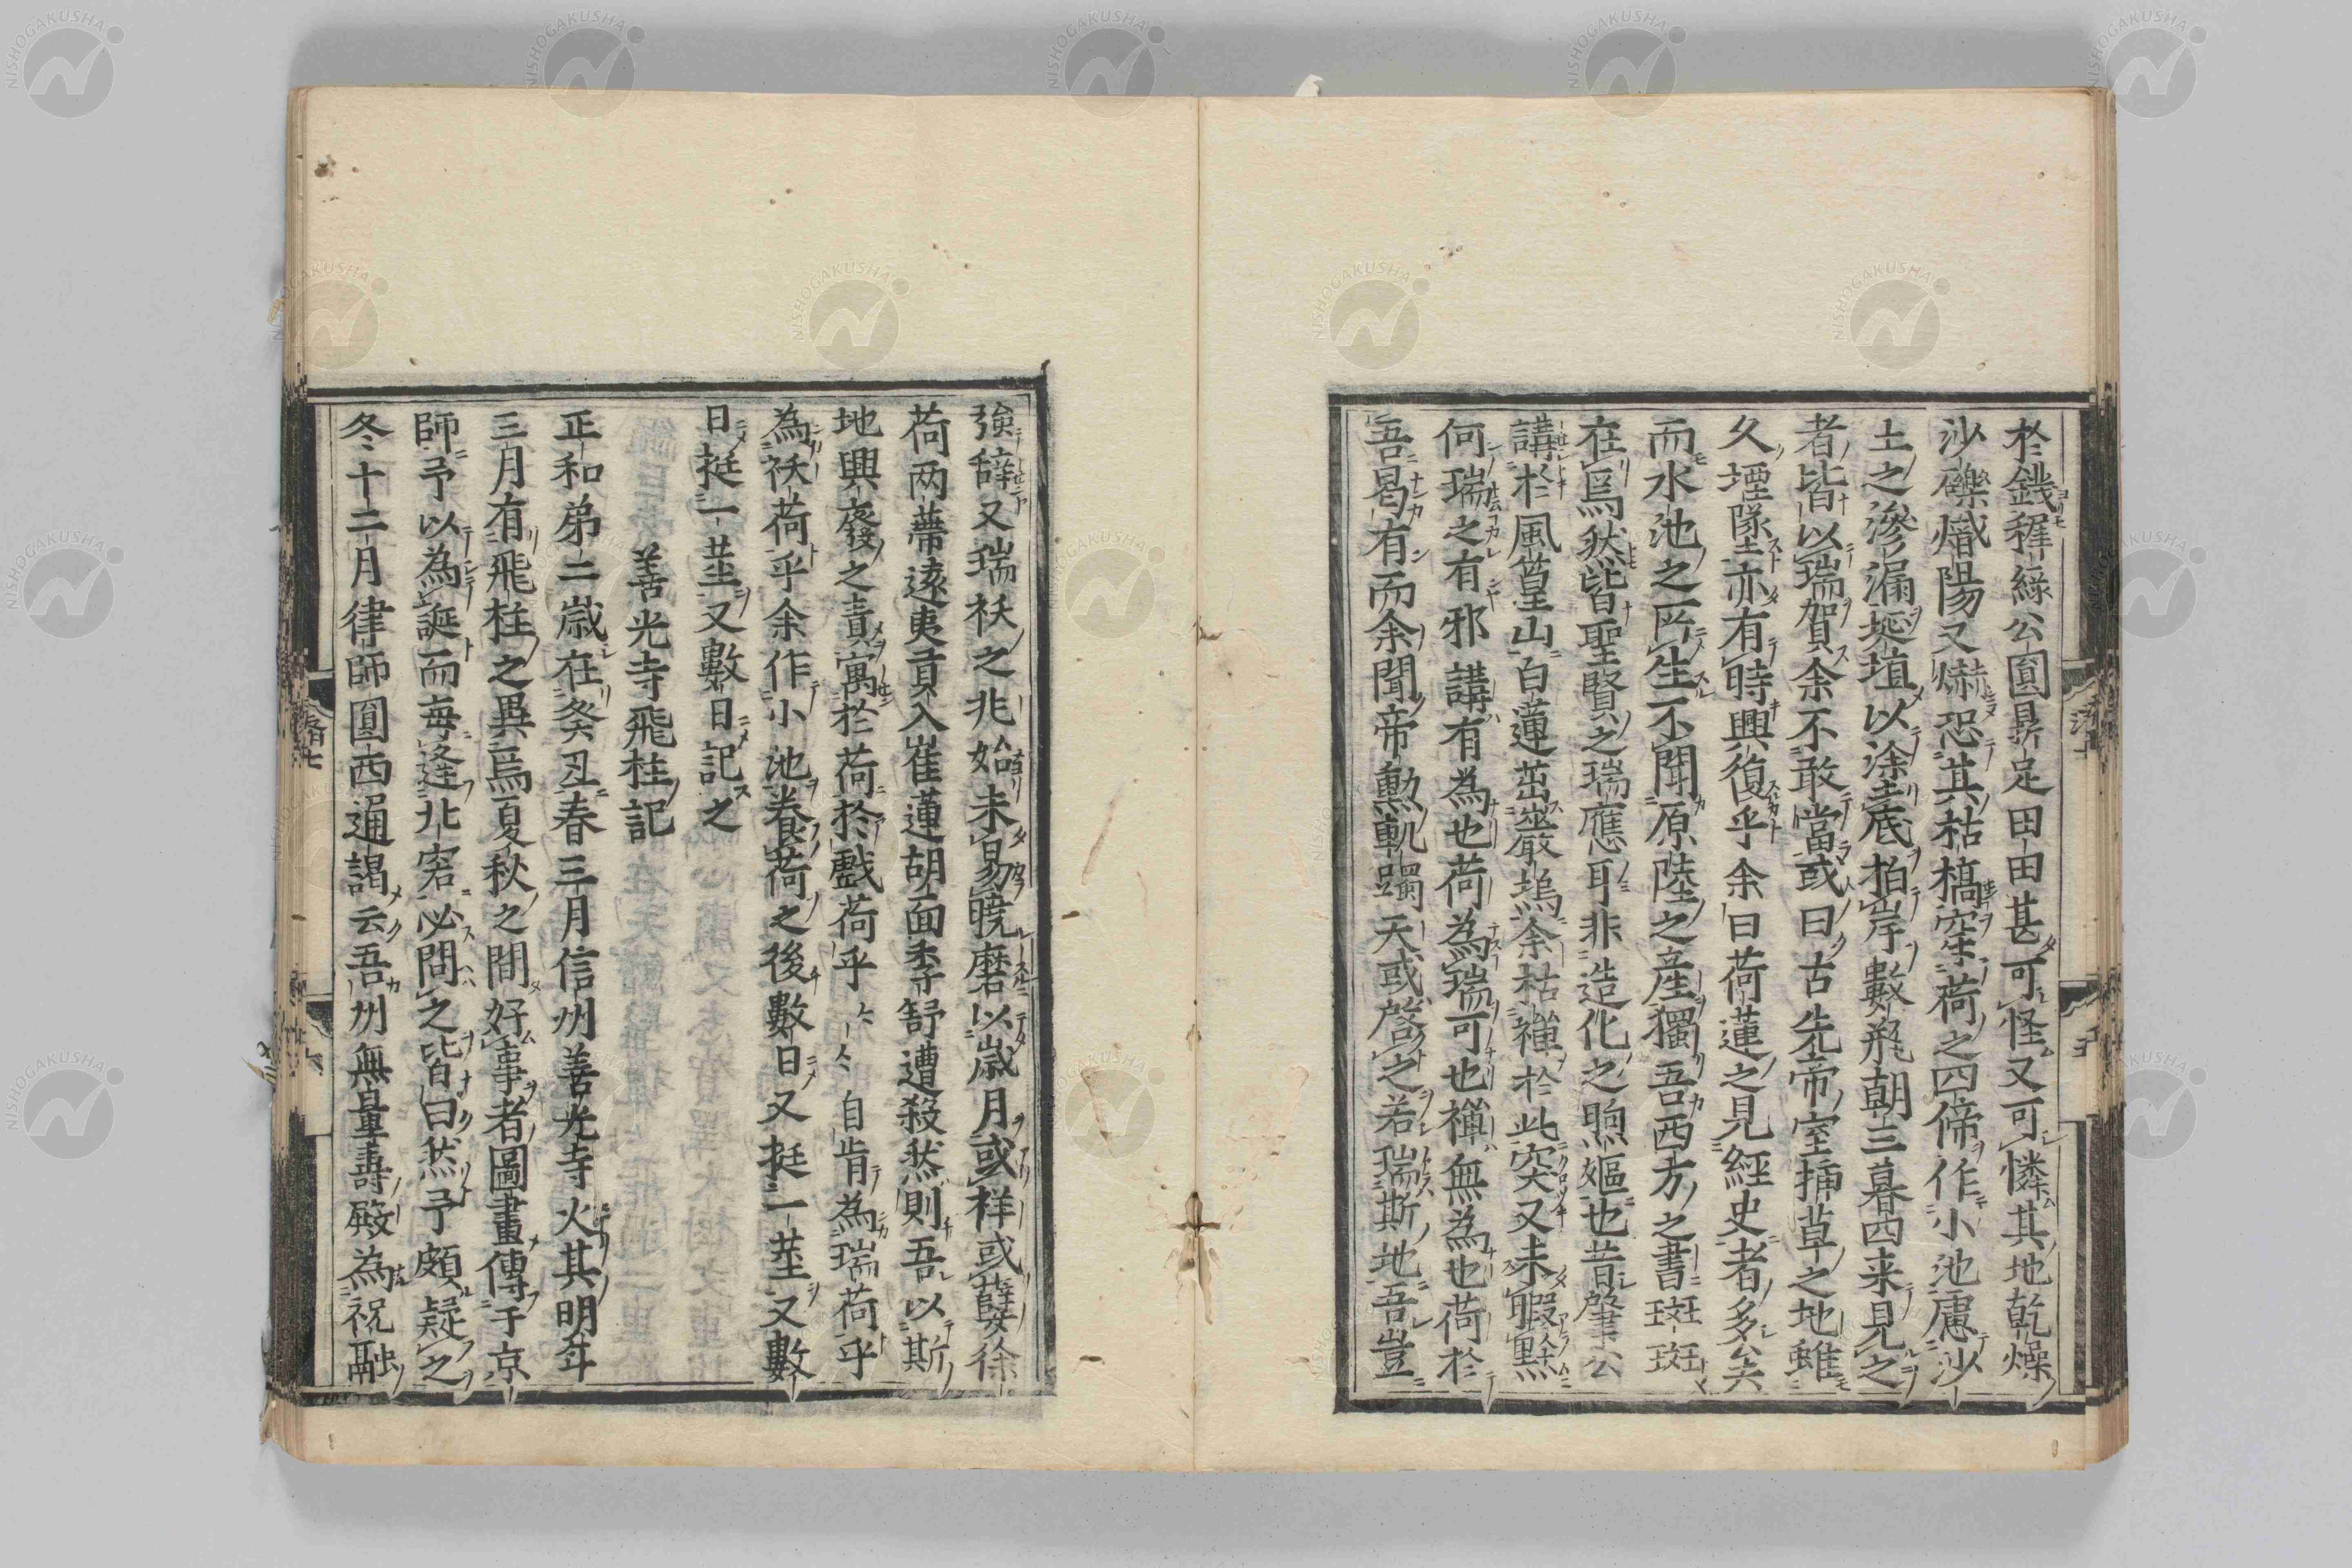 於錢穉綠公圓鼎足田田甚可怪又可憐其地乾燥
沙礫熾陽又爀恐其枯槁窂荷之四傍作小池慮沙
土之滲漏埏埴以塗底拍岸數瓶朝三暮四来見之
者皆以瑞賀余不敢當或曰古先帝室挿草之地雖
久堙墜亦有時興復乎余曰荷蓮之見經史者多矣
而水池之所生不聞原陸之産獨吾西方之書斑斑
在焉然皆聖賢之瑞應耳非造化之煦嫗也昔肇公
講於風篁山白蓮茁巖塢余枯禪於此突又未暇黔
何瑞之有邪講有為也荷為瑞可也禪無為也荷於
吾曷有而余聞帝勲軌躅天或啓之若瑞斯地吾豈
強辭又瑞祅之兆始未易曉磨以歳月或祥或孽徐
荷两蔕遠夷貢入崔蓮胡面季舒遭殺然則吾以斯
地興廢之責寓於荷於戲荷乎人人自肯為瑞荷乎
為祅荷乎余作小池養荷之後數日又挺一莖又數
日挺一莖又數日記之
善光寺飛柱記
正和弟二歳在癸丑春三月信州善光寺火其明年
三月有飛柱之異焉夏秋之間好事者圖畫傳于京
師予以為誕而毎逢北客必問之皆曰然予頗疑之
冬十二月律師圓西通謁云吾州無量壽殿為祝融
NISHOGAKUSHA